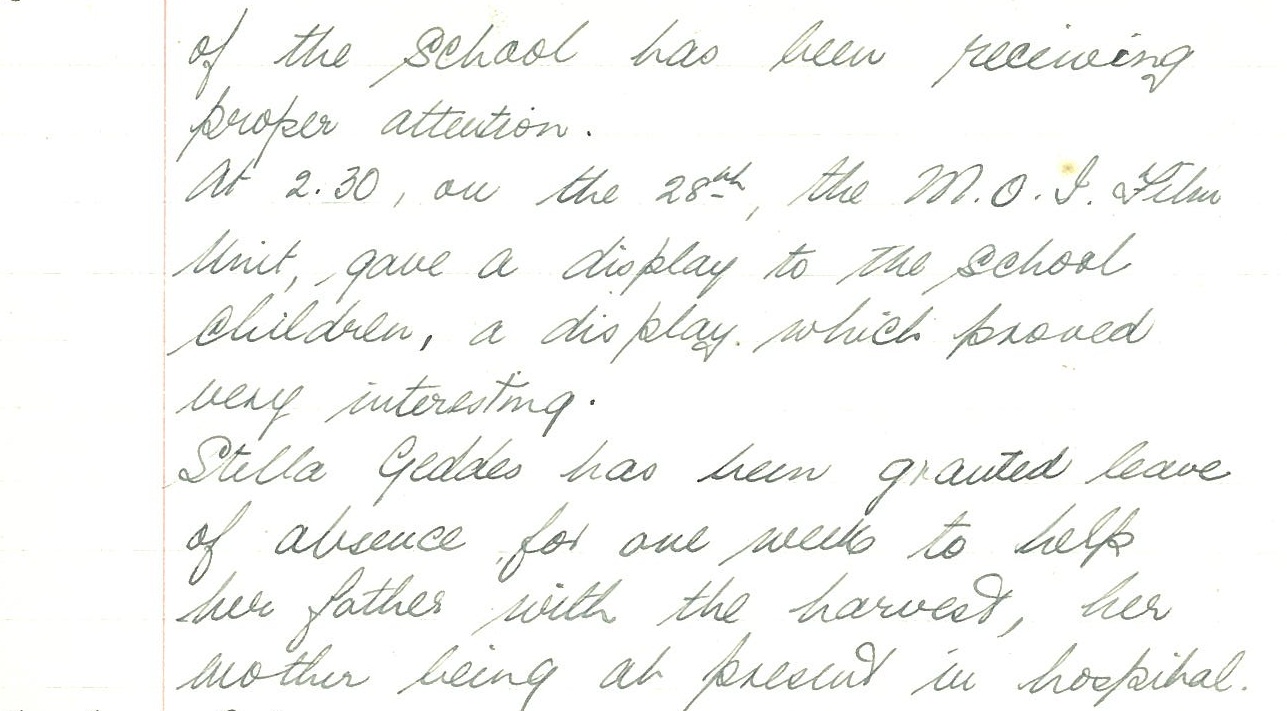 of the school has been receiving
proper attention.
At 2.30, on the 28th, the M.O.I. Film
Unit, gave a display to the school
children, a display which proved
very interesting.
Stella Geddes has been granted leave
of absence for one week to help
her father with the harvest, her
mother being at present in hospital.